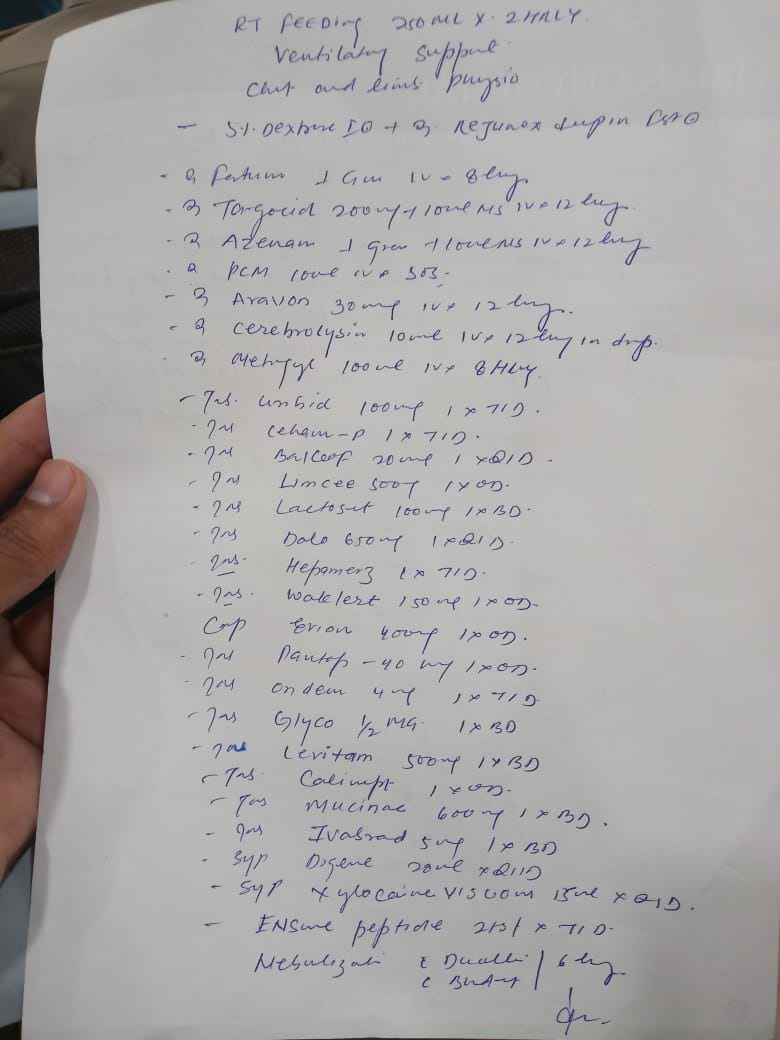 RT FEEDING 250 ML x 2 HRLY.
Ventilatory Support
Chest and limb physio
- 5% Dextrose + Rejunex
- 1 Gm IV x 8 hrly
- Targocid 200mg + 100ml NS IV x 12 hrly.
- Azenam 1 gm + 100ml NS IV x 12 hrly
- PCM 100ml IV x SOS.
- Aravon 30mg IV x 12 hrly.
- Cerebrolysin 10ml IV x 12 hrly in drip.
- Metrogyl 100ml IV x 8 HRLY.
- Tab. Uribid 100mg 1 x TID.
- Tab 1 x TID.
- Tab 20mg 1 x QID.
- Tab Limcee 500mg 1 x OD.
- Tab 100mg 1 x BD.
- Tab Dolo 650mg 1 x QID.
- Tab. Hepamerz 1 x TID.
- Tab. Waklert 150mg 1 x OD.
Cap Evion 400mg 1 x OD.
- Tab Pantop-40 mg 1 x OD.
- Tab ondem 4mg 1 x TID
- Tab Glyco 1/2 MG. 1 x BD
- Tab Levitam 500mg 1 x BD
- Tab. 1 x OD.
- Tab Mucinac 600mg 1 x BD.
- Tab Ivabrad 5mg 1 x BD
- Syp Digene 20ml x QID
- Syp Xylocaine Viscous 15ml x QID.
- ENSURE peptide x TID.
Nebulization c Duolin / 6 hrly
c Budecort